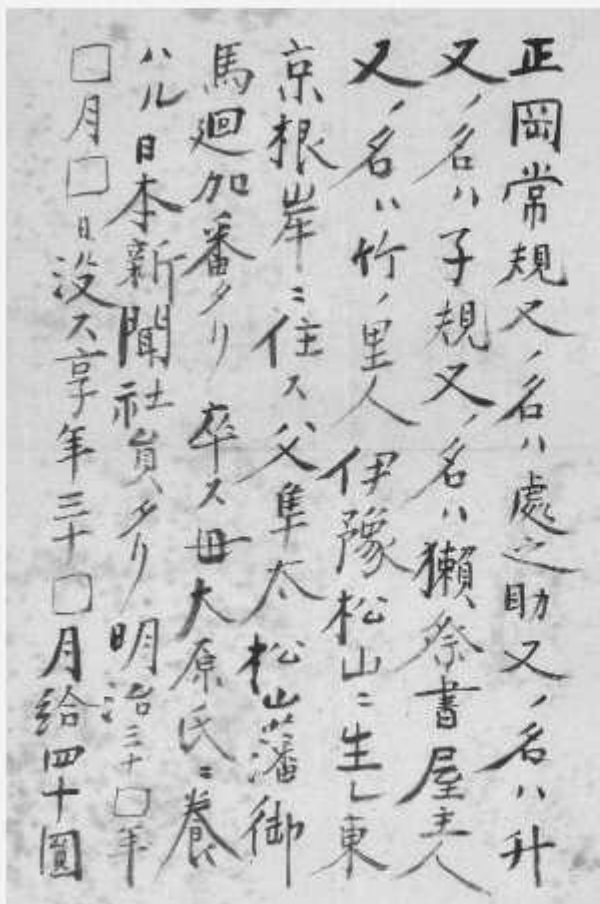 正岡常規又ノ名ハ處之助又ノ名ハ升
又ノ名ハ子規又ノ名ハ獺祭書屋主人
又ノ名ハ竹ノ里人伊豫松山ニ生レ東
京根岸ニ住ス父隼太松山藩御
馬廻加番タリ卒ス母大原氏ニ養
ハル日本新聞社員タリ明治三十□年
□月□日没ス享年三十□月給四十圓